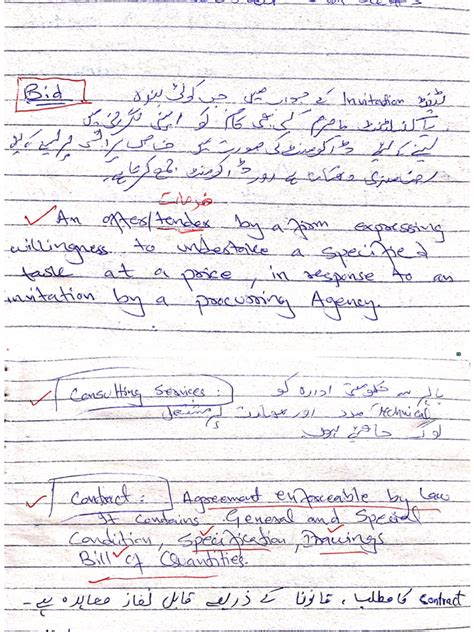 Bid
ٹینڈر Invitation کے جواب میں جب کوئی بندہ
یا کنسلٹنٹ فرم کسی بھی کام کو اپنی نگرانی میں
لینے کے لیے ڈاکومنٹ کی صورت میں خاص پرائس پر کے لیے
رضامندی دکھاتا ہے اور ڈاکومنٹ جمع کرتا ہے۔
An offer/tender by a firm expressing
willingness to undertake a specified
task at a price, in response to an
invitation by a procuring Agency.
Consulting Services: سے حکومتی ادارہ کو
technical مدد اور مہارت پر مشتمل
ہوں۔
Contract: Agreement enforceable by law
It contains General and Special
Condition, Specification, Drawings
Bill of Quantities.
contract کا مطلب، قانون کے ذریعے قابل نفاذ معاہدہ ہے۔